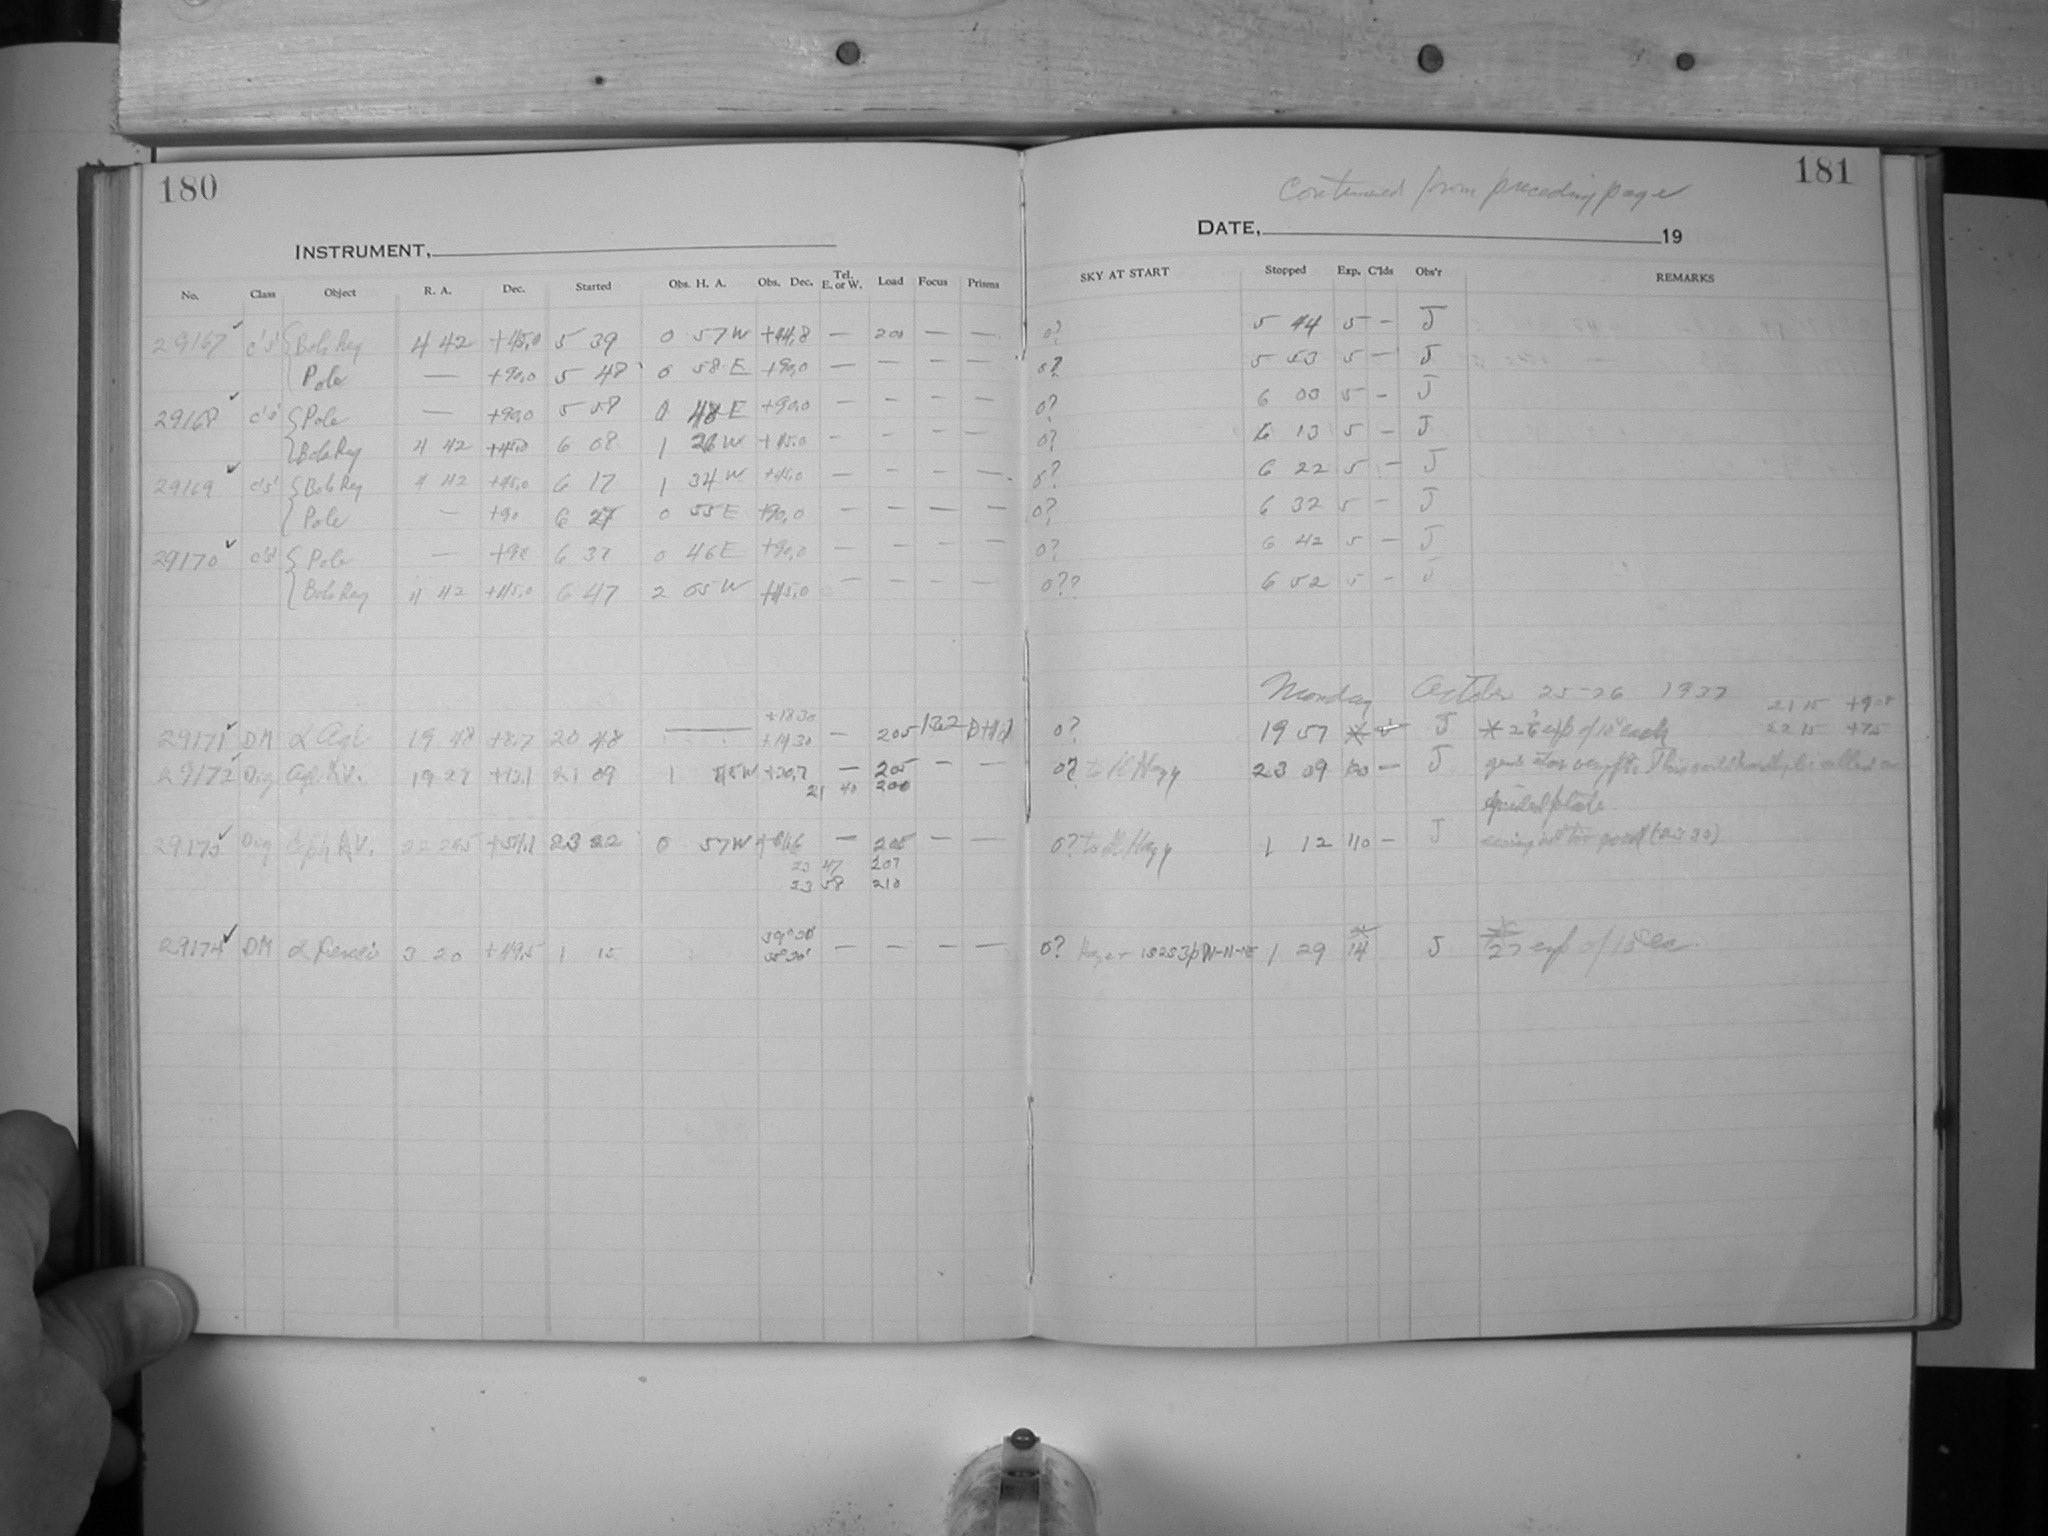 180
INSTRUMENT,
No. Class Object R. A. Dec. Started Obs. H. A. Obs. Dec. Tel. E. or W. Load Focus Prisms
29167 c's' Bok Reg 4 42 +45.0 5 39 0 57 W +44.8 — 200 — —
Pole — +90.0 5 48 0 58 E +90.0 — — — —
29168 c's' Pole — +90.0 5 58 0 48 E +90.0 — — — —
Bok Reg 4 42 +45.0 6 08 1 26 W +45.0 — — — —
29169 c's' Bok Reg 4 42 +45.0 6 17 1 34 W +45.0 — — — —
Pole — +90 6 27 0 55 E +90.0 — — — —
29170 c's' Pole — +90 6 37 0 46 E +90.0 — — — —
Bok Reg 4 42 +45.0 6 47 2 05 W +45.0 — — — —
+18 30
29171 DM α Aql 19 48 +8.7 20 48 — +14 30 — 205 1362
29172 Aql 19 27 +12.1 21 09 1 W +20.7 — 205 — —
21 40 200
29173 R.V. 23 22 0 57 W — 205 — —
23 47 207
23 58 210
29174 DM α Persei 3 20 +49.5 1 15 — — — —
181
Continued from preceding page
DATE, 19
SKY AT START Stopped Exp. C'lds Obs'r REMARKS
0? 5 44 5 — J
0? 5 53 5 — J
0? 6 03 5 — J
0? 6 13 5 — J
0? 6 22 5 — J
0? 6 32 5 — J
0? 6 42 5 — J
0?? 6 52 5 — J
Monday October 25-26 1937
21 15
22 15 +75
0? 19 57 * J * exp of 15s each
0? to Hazy 23 09 120 — J This could hardly be called a
guided plate
0? to Hazy 1 12 110 — J seeing not too good
0? 1 29 14 * J * 27 exp of 15s ea.